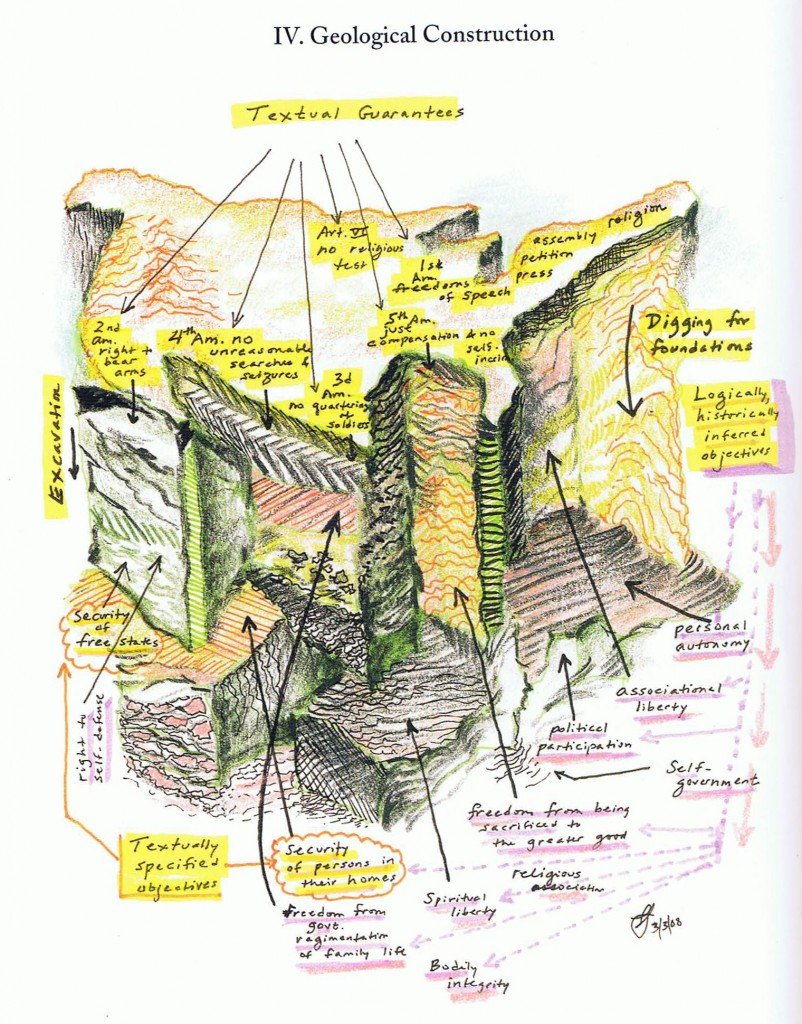 IV. Geological Construction
Textual Guarantees
Art. VI
no religious
test
1st
Am.
freedoms
of speech
assembly
petition
press
religion
2nd
am.
right to
bear
arms
4th Am. no
unreasonable
searches &
seizures
3d
Am.
no quartering
of
soldiers
5th Am.
just
compensation & no
self-
incrim
Digging for
foundations
Excavation
Logically,
historically
inferred
objectives
Security
of
free states
right to
self-defense
personal
autonomy
associational
liberty
political
participation
Self-
government
freedom from being
sacrificed to
the greater good
Textually
specified
objectives
Security
of persons in
their homes
religious
association
Spiritual
liberty
freedom from
govt.
regimentation
of family life
Bodily
integrity
3/3/08